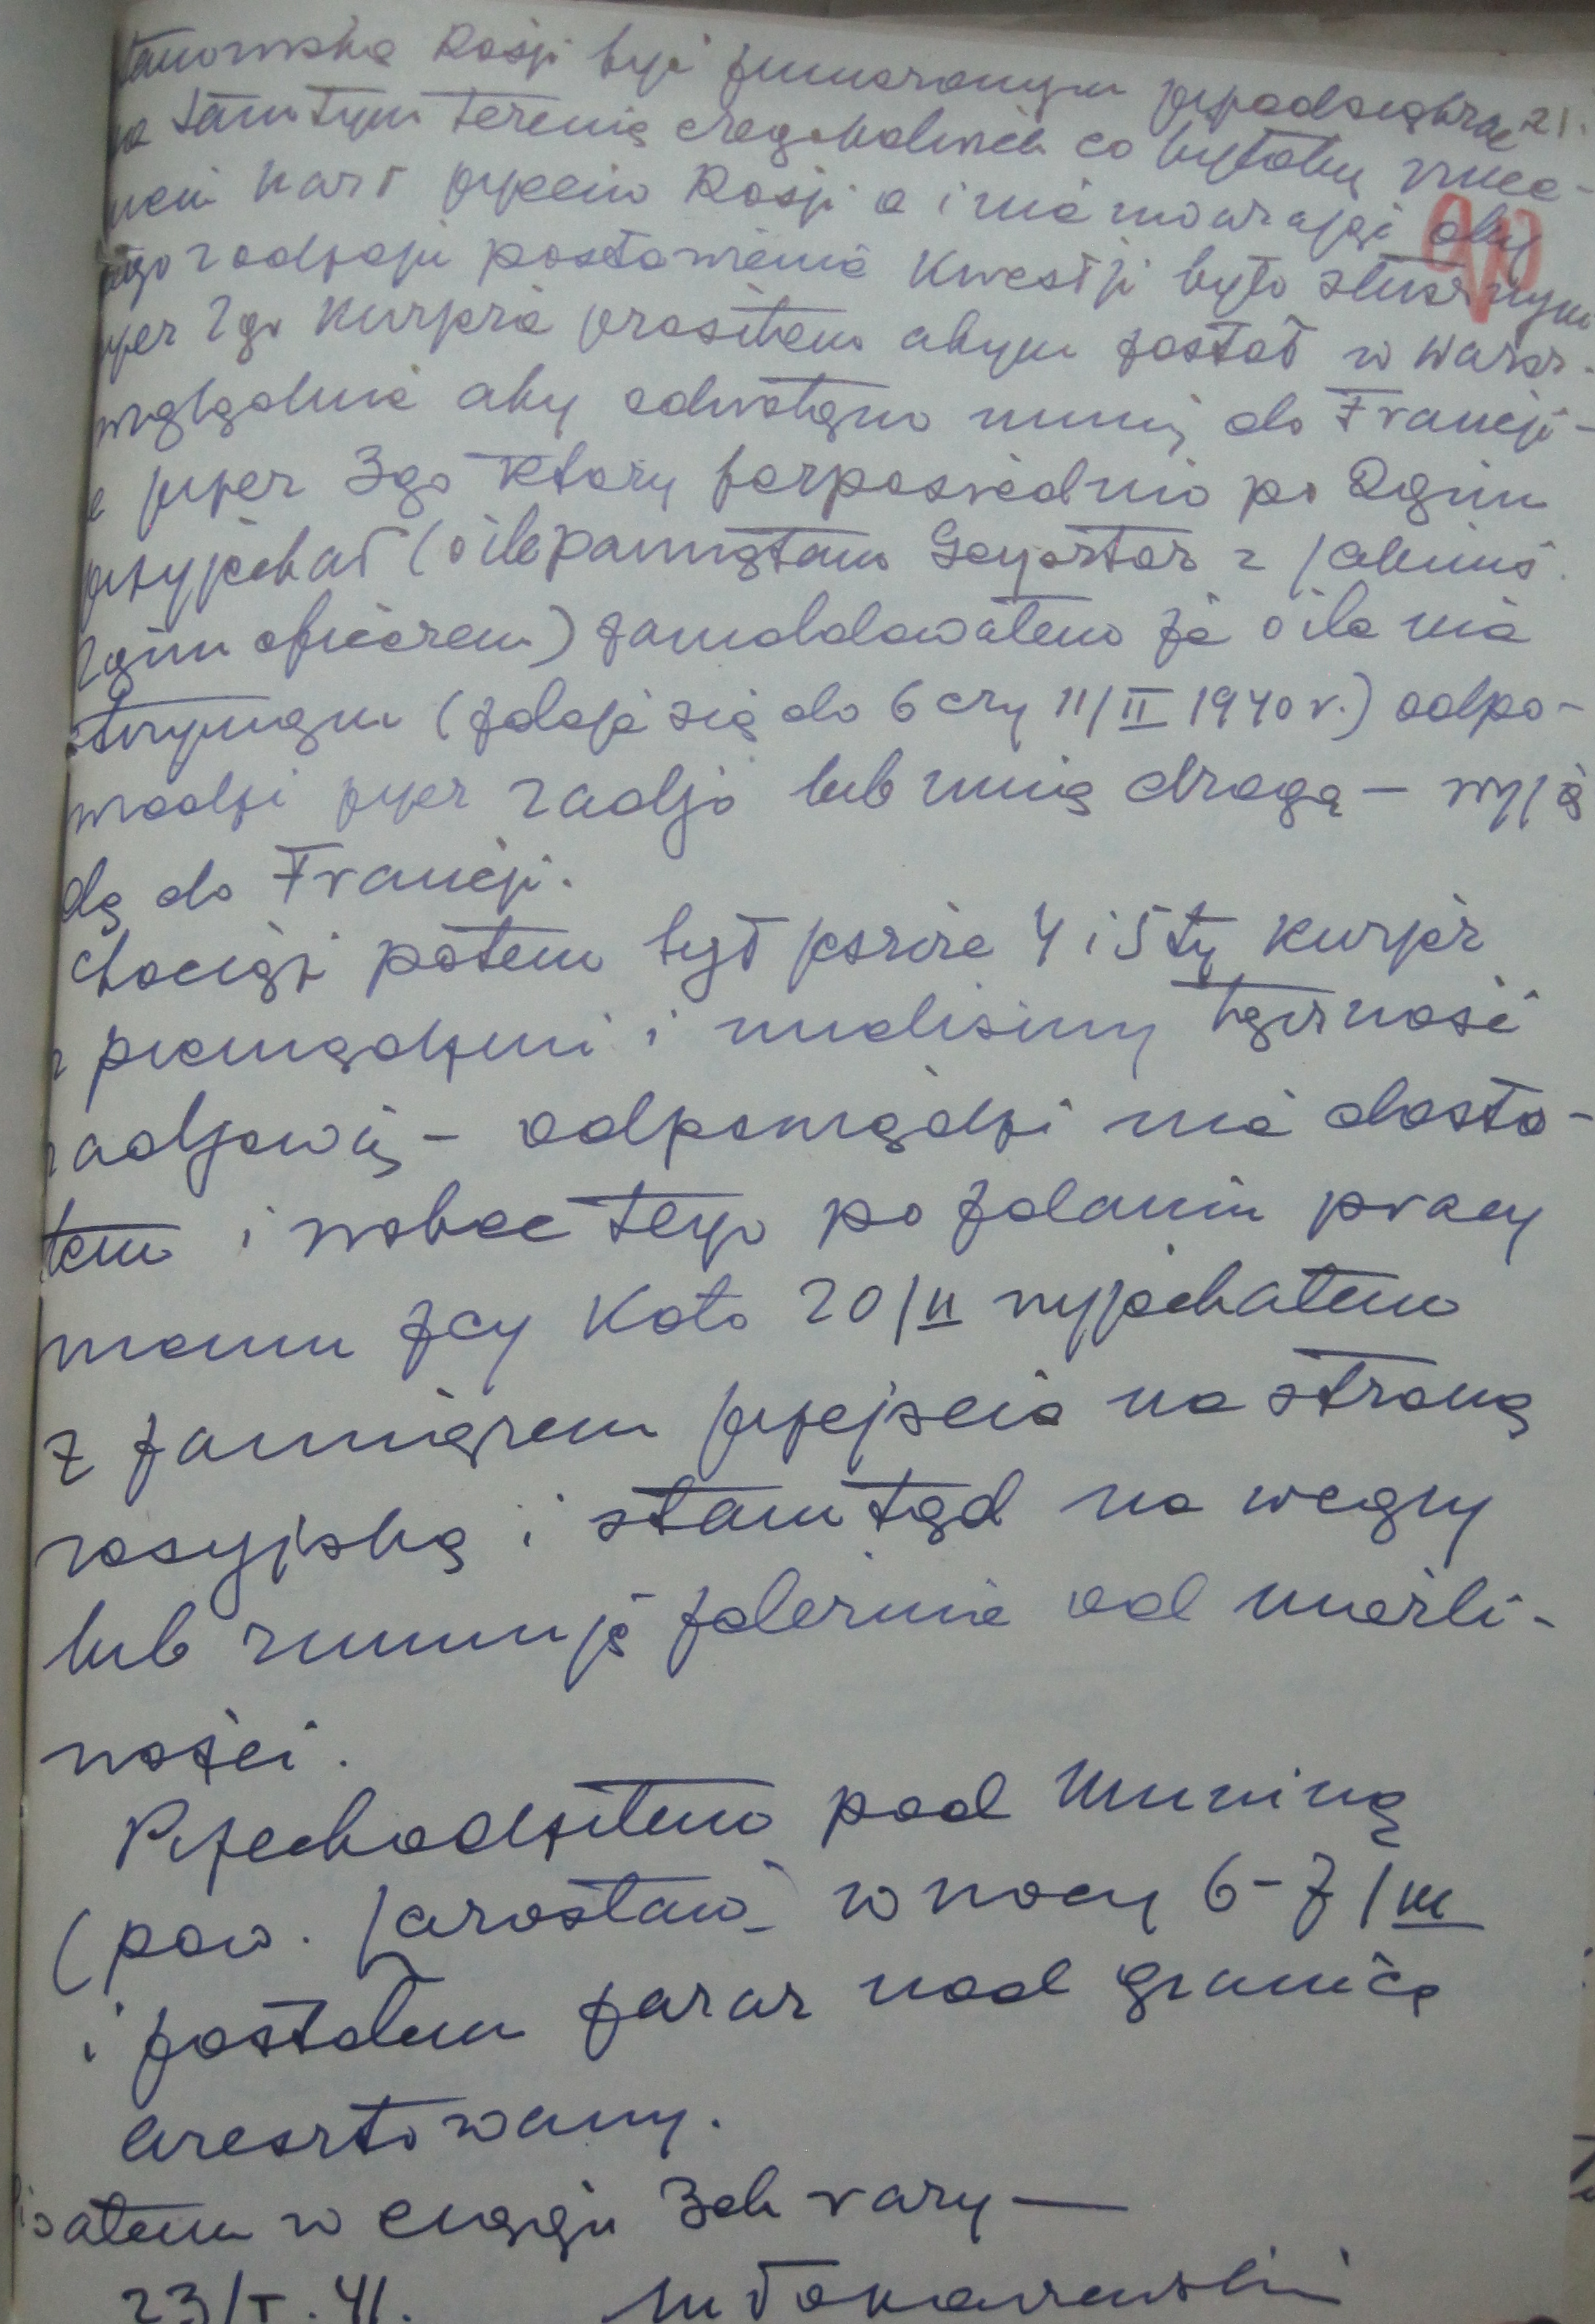 stanowiska Rosji być zmuszonym przedsiębrać 21.
na tamtym terenie cośkolwiek co byłoby
kart przeciw Rosji a i nie uważając aby
tego rodzaju postawienie kwestji było słusznym
przez 2go kurjera prosiłem abym został w Warsz.
względnie aby odwołano mnię do Francji –
a przez 3go który bezpośrednio po 2gim
przyjechał (o ile pamiętam Geysztor z jakimś
2gim oficerem) zameldowałem że o ile nie
otrzymam (zdaje się do 6 czy 11/II 1940 r.) odpo-
wiedzi przez radjo lub inną drogą – wyja
dę do Francji.
Chociaż potem był jeszcze 4 i 5ty kurjer
z pieniędzmi i mieliśmy łączność
radjową – odpowiedzi nie dosta-
łem i wobec tego po zdaniu pracy
memu zcy koło 20/II wyjechałem
z zamiarem przejścia na stronę
rosyjską i stamtąd na węgry
lub rumunję zależnie od możli-
ności.
Przechodziłem pod Muniną
(pow. Jarosław) w nocy 6-7/III
i zostałem zaraz nad granicą
aresztowany.
isałem w ciągu 3ch razy —
23/I. 41. M Tokarzewski